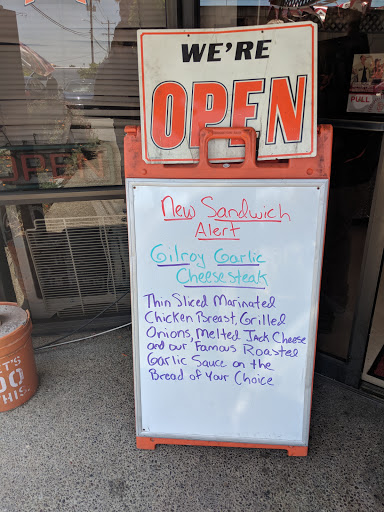 WE'RE
OPEN
OPEN
PULL
New Sandwich
Alert
Gilroy Garlic
Cheesesteak
Thin Sliced Marinated
Chicken Breast, Grilled
Onions, Melted Jack Cheese
and our Famous Roasted
Garlic Sauce on the
Bread of Your Choice
LET'S
DO
THIS.